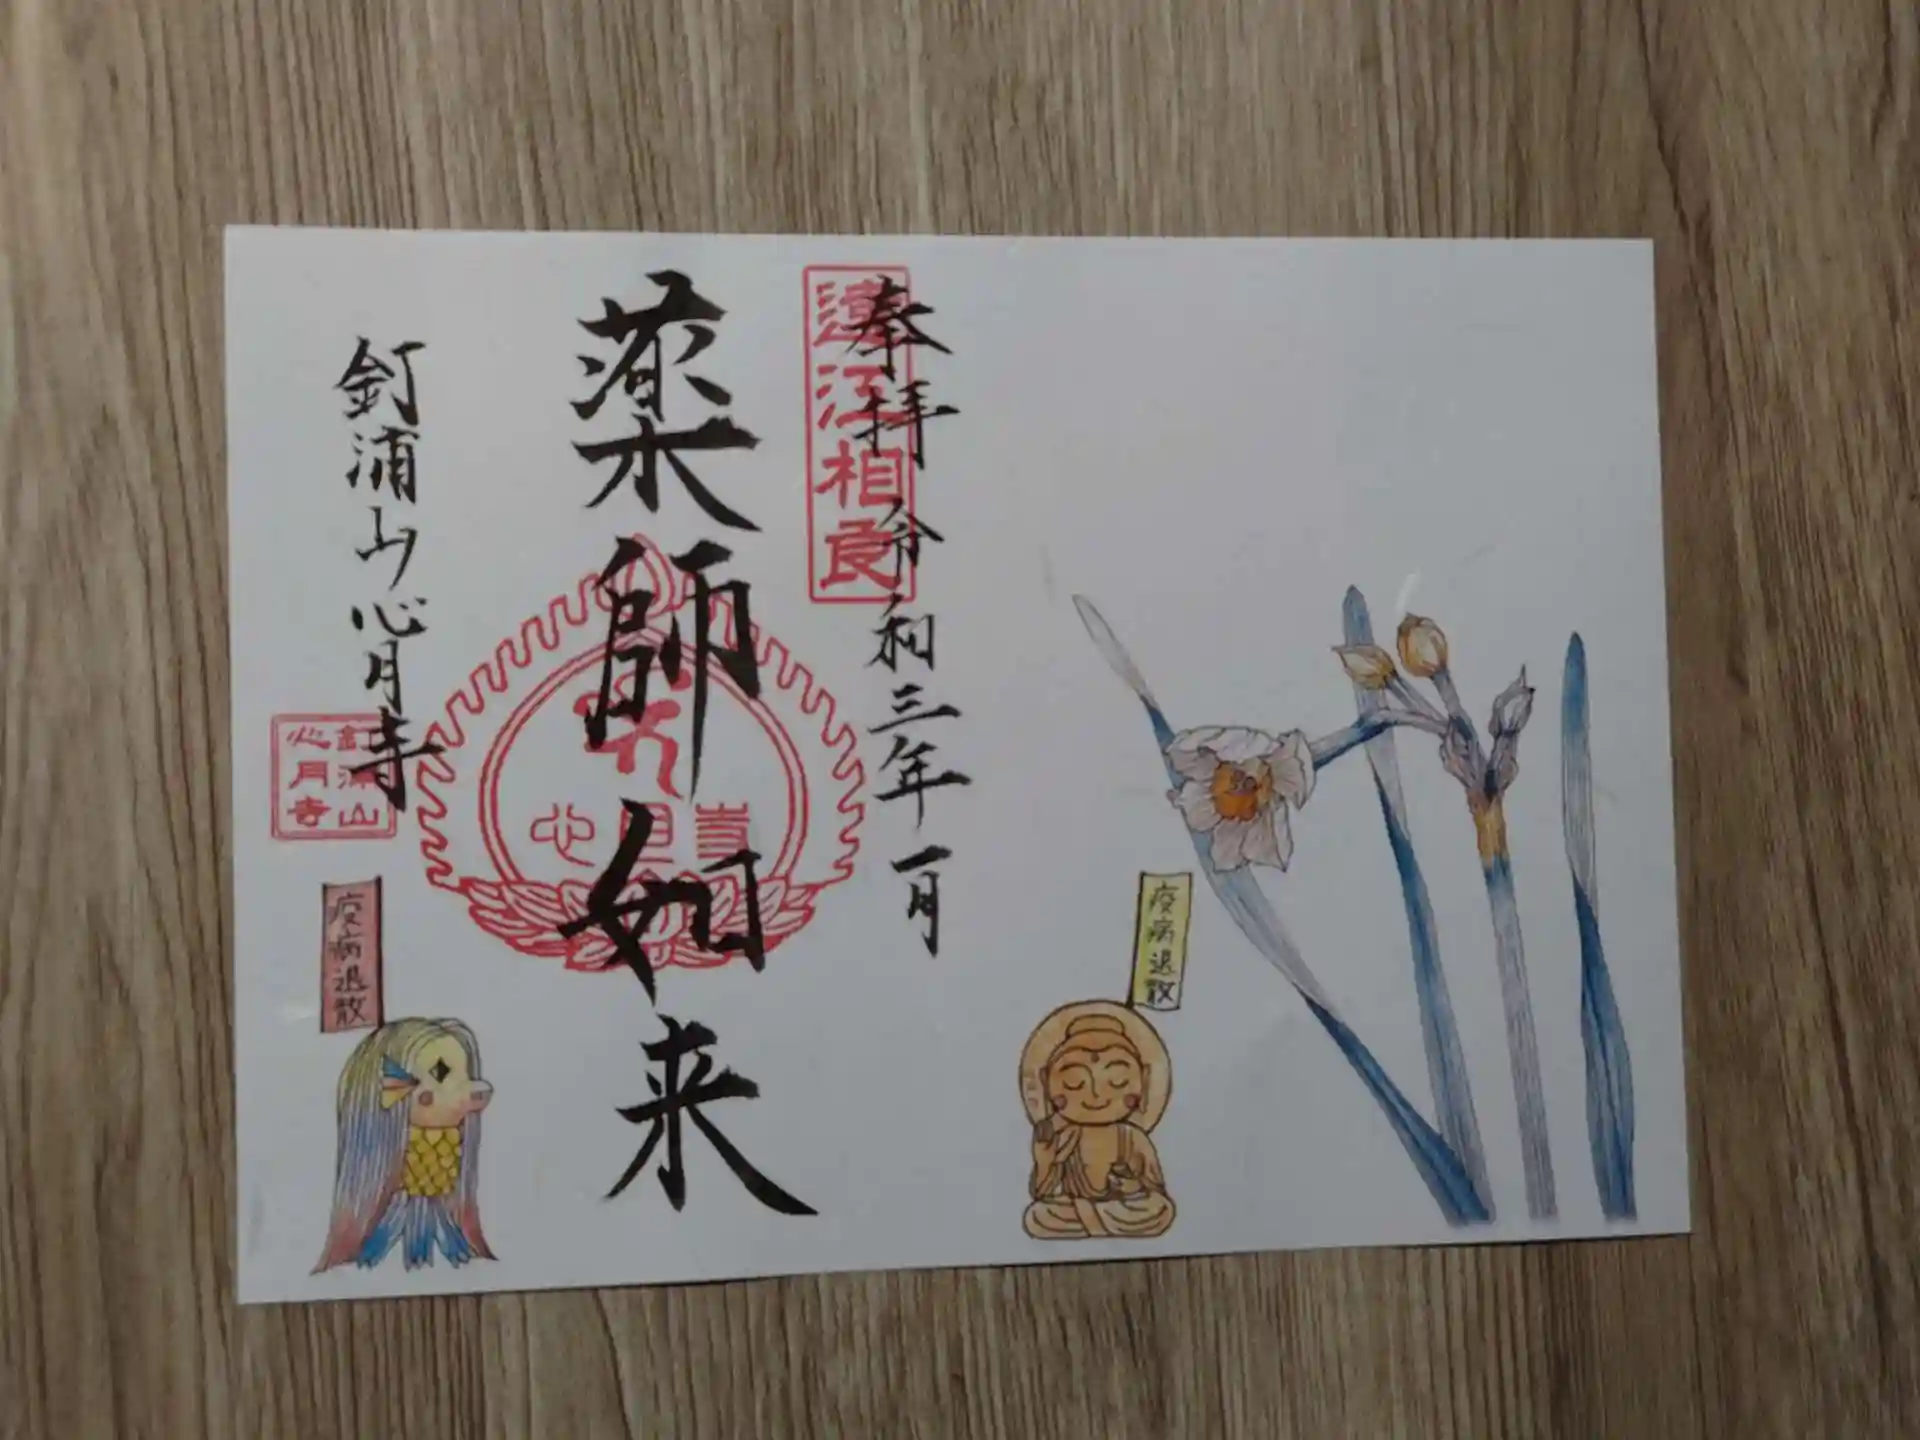 奉拝 令和三年一月
遠江相良
薬師如来
心月寺
釘浦山心月寺
釘浦山
心月寺
疫病退散
疫病退散